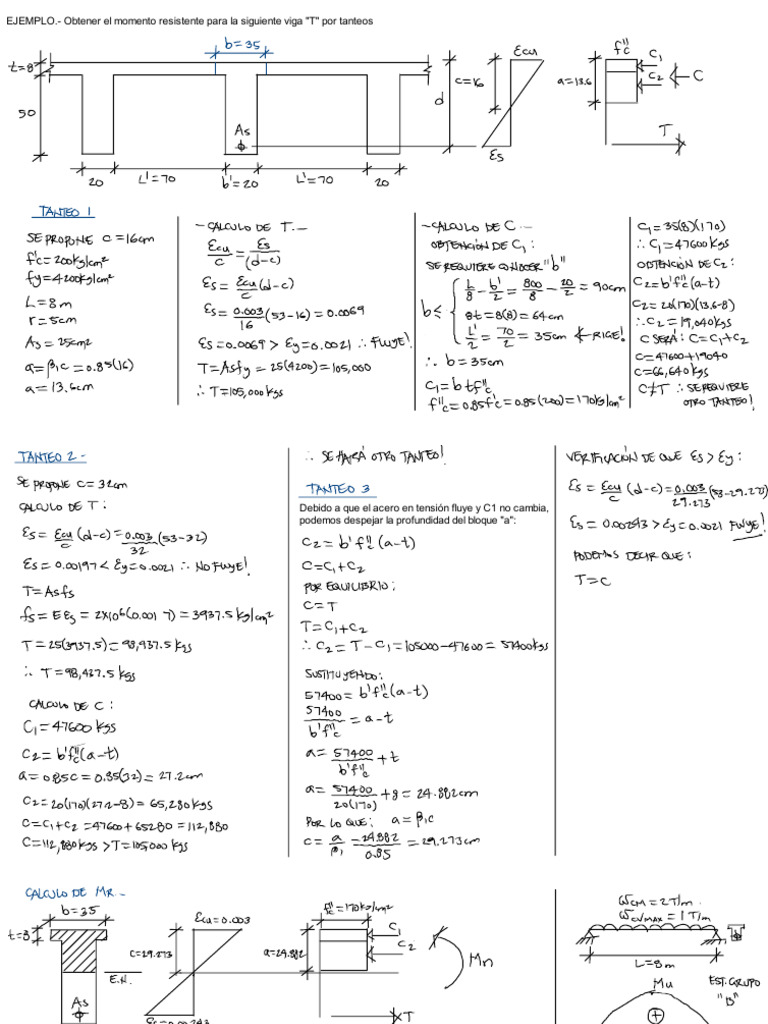 EJEMPLO.- Obtener el momento resistente para la siguiente viga "T" por tanteos
b=35
t=8
50
As
20
L'=70
b'=20
L'=70
20
d
Ecu
c=16
Es
f''c
a=13.6
C1
C2
C
T
TANTEO 1
SE PROPONE c=16cm
f'c=200kg/cm²
fy=4200kg/cm²
L=8m
r=5cm
As=25cm²
a=β1c=0.85(16)
a=13.6cm
-CALCULO DE T.-
Ecu/c = Es/(d-c)
Es = Ecu/c (d-c)
Es = 0.003/16 (53-16) = 0.0069
Es=0.0069 > Ey=0.0021 ∴ FLUYE!
T=Asfy = 25(4200)=105,000
∴ T=105,000kgs
-CALCULO DE C.-
OBTENCIÓN DE C1:
SE REQUIERE CONOCER "b"
b≤ { L/8 - b'/2 = 800/8 - 20/2 = 90cm
8t=8(8)=64cm
L'/2 = 70/2 = 35cm ← RIGE!
∴ b=35cm
C1=b t f''c
f''c=0.85f'c=0.85(200)=170kg/cm²
C1=35(8)(170)
∴ C1=47600Kgs
OBTENCIÓN DE C2:
C2=b'f''c(a-t)
C2=20(170)(13.6-8)
∴ C2=19,040kgs
C SERÁ: C=C1+C2
C=47600+19040
C=66,640kgs
C≠T ∴ SE REQUIERE
OTRO TANTEO!
TANTEO 2-
SE PROPONE c=32cm
CALCULO DE T:
Es=Ecu/c (d-c)=0.003/32 (53-32)
Es=0.00197<Ey=0.0021 ∴ NO FLUYE!
T=Asfs
fs=EEs=2X10⁶(0.001 7)=3937.5kg/cm²
T=25(3937.5)=98,937.5kgs
∴ T=98,437.5kgs
CALCULO DE C:
C1=47600kgs
C2=b'f''c(a-t)
a=0.85c=0.85(32)=27.2cm
C2=20(170)(27.2-8)=65,280kgs
C=C1+C2=47600+65280=112,880
C=112,880kgs>T=105,000kgs
∴ SE HARÁ OTRO TANTEO!
TANTEO 3
Debido a que el acero en tensión fluye y C1 no cambia,
podemos despejar la profundidad del bloque "a":
C2=b'f''c(a-t)
C=C1+C2
POR EQUILIBRIO:
C=T
T=C1+C2
∴ C2=T-C1=105000-47600=57400kgs
SUSTITUYENDO:
57400=b'f''c(a-t)
57400/b'f''c = a-t
a=57400/b'f''c + t
a=57400/20(170) +8=24.882cm
POR LO QUE: a=β1c
c=a/β1 - 24.882/0.85 = 29.273cm
VERIFICACIÓN DE QUE Es>Ey:
Es=Ecu/c (d-c)=0.003/29.273 (53-29.273)
Es=0.00243>Ey=0.0021 FLUYE!
PODEMOS DECIR QUE:
T=C
CALCULO DE MR.-
b=35
t=8
As
E.N.
Ecu=0.003
c=29.273
Es=0.00243
f''c=170kg/cm²
a=24.882
C1
C2
T
Mn
ωCM=2T/m
ωCVMAX=1T/m
L=8m
Mu
EST. GRUPO
"B"
+